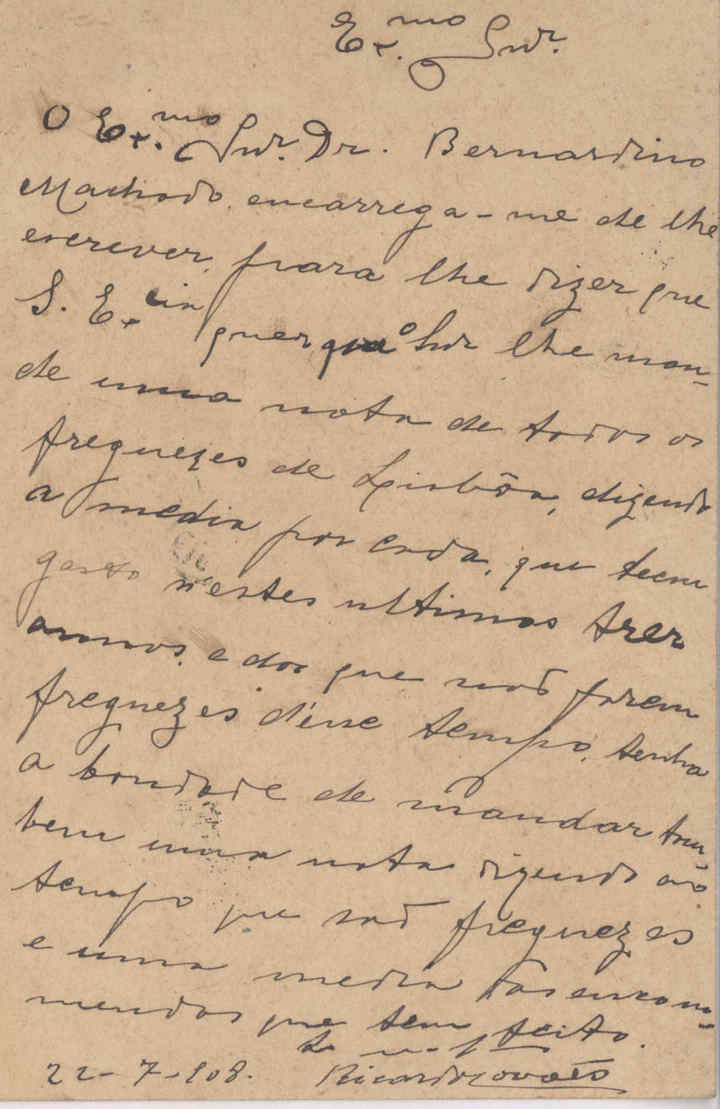 Ex.mo Snr.
O Ex.mo Snr. Dr. Bernardino
Machado encarrega-me de lhe
escrever, para lhe dizer que
S. Ex.cia quer que o Snr lhe man-
de uma nota de todos os
freguezes de Lisbôa, dizendo
a media por cada, que teem
gasto n'estes ultimos trez
annos, e dos que não forem
freguezes d'esse tempo, tenha
a bondade de mandar tam-
bem uma nota dizendo o
tempo que são freguezes
e uma media das encom-
mendas que tem feito.
22-7-908. Ricardo